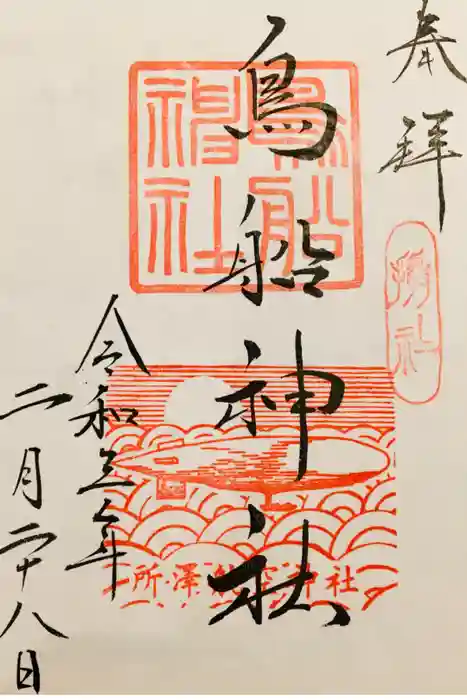 奉拝
摂社
鳥船神社
鳥船神社
令和五年
二月二十八日
所澤航空神社